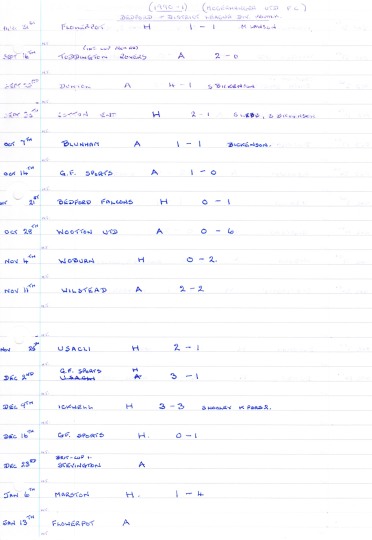 (1990-1) (MOGGERHANGER UTD F.C.)
BEDFORD & DISTRICT LEAGUE DIV
FLOWERPOT. H 1-1
SEPT TODDINGTON ROVERS A 2-0
SEPT DUNTON A 4-1 S DICKENSON
SEPT H 2-1 S DICKENSON
OCT 7TH BLUNHAM A 1-1 DICKENSON.
OCT 14TH G.F. SPORTS A 1-0
21ST BEDFORD FALCONS H 0-1
OCT 28TH WOOTTON UTD A 0-6
NOV 4TH WOBURN H 0-2.
NOV 11TH WILSTEAD A 2-2
NOV 25TH USACLI H 2-1
DEC 2ND G.F. SPORTS H 3-1
DEC 9TH ICKWELL H 3-3
DEC 16TH G.F. SPORTS H. 0-1
DEC 23RD STEVINGTON A
JAN 6TH MARSTON H. 1-4
JAN 13TH FLOWERPOT A